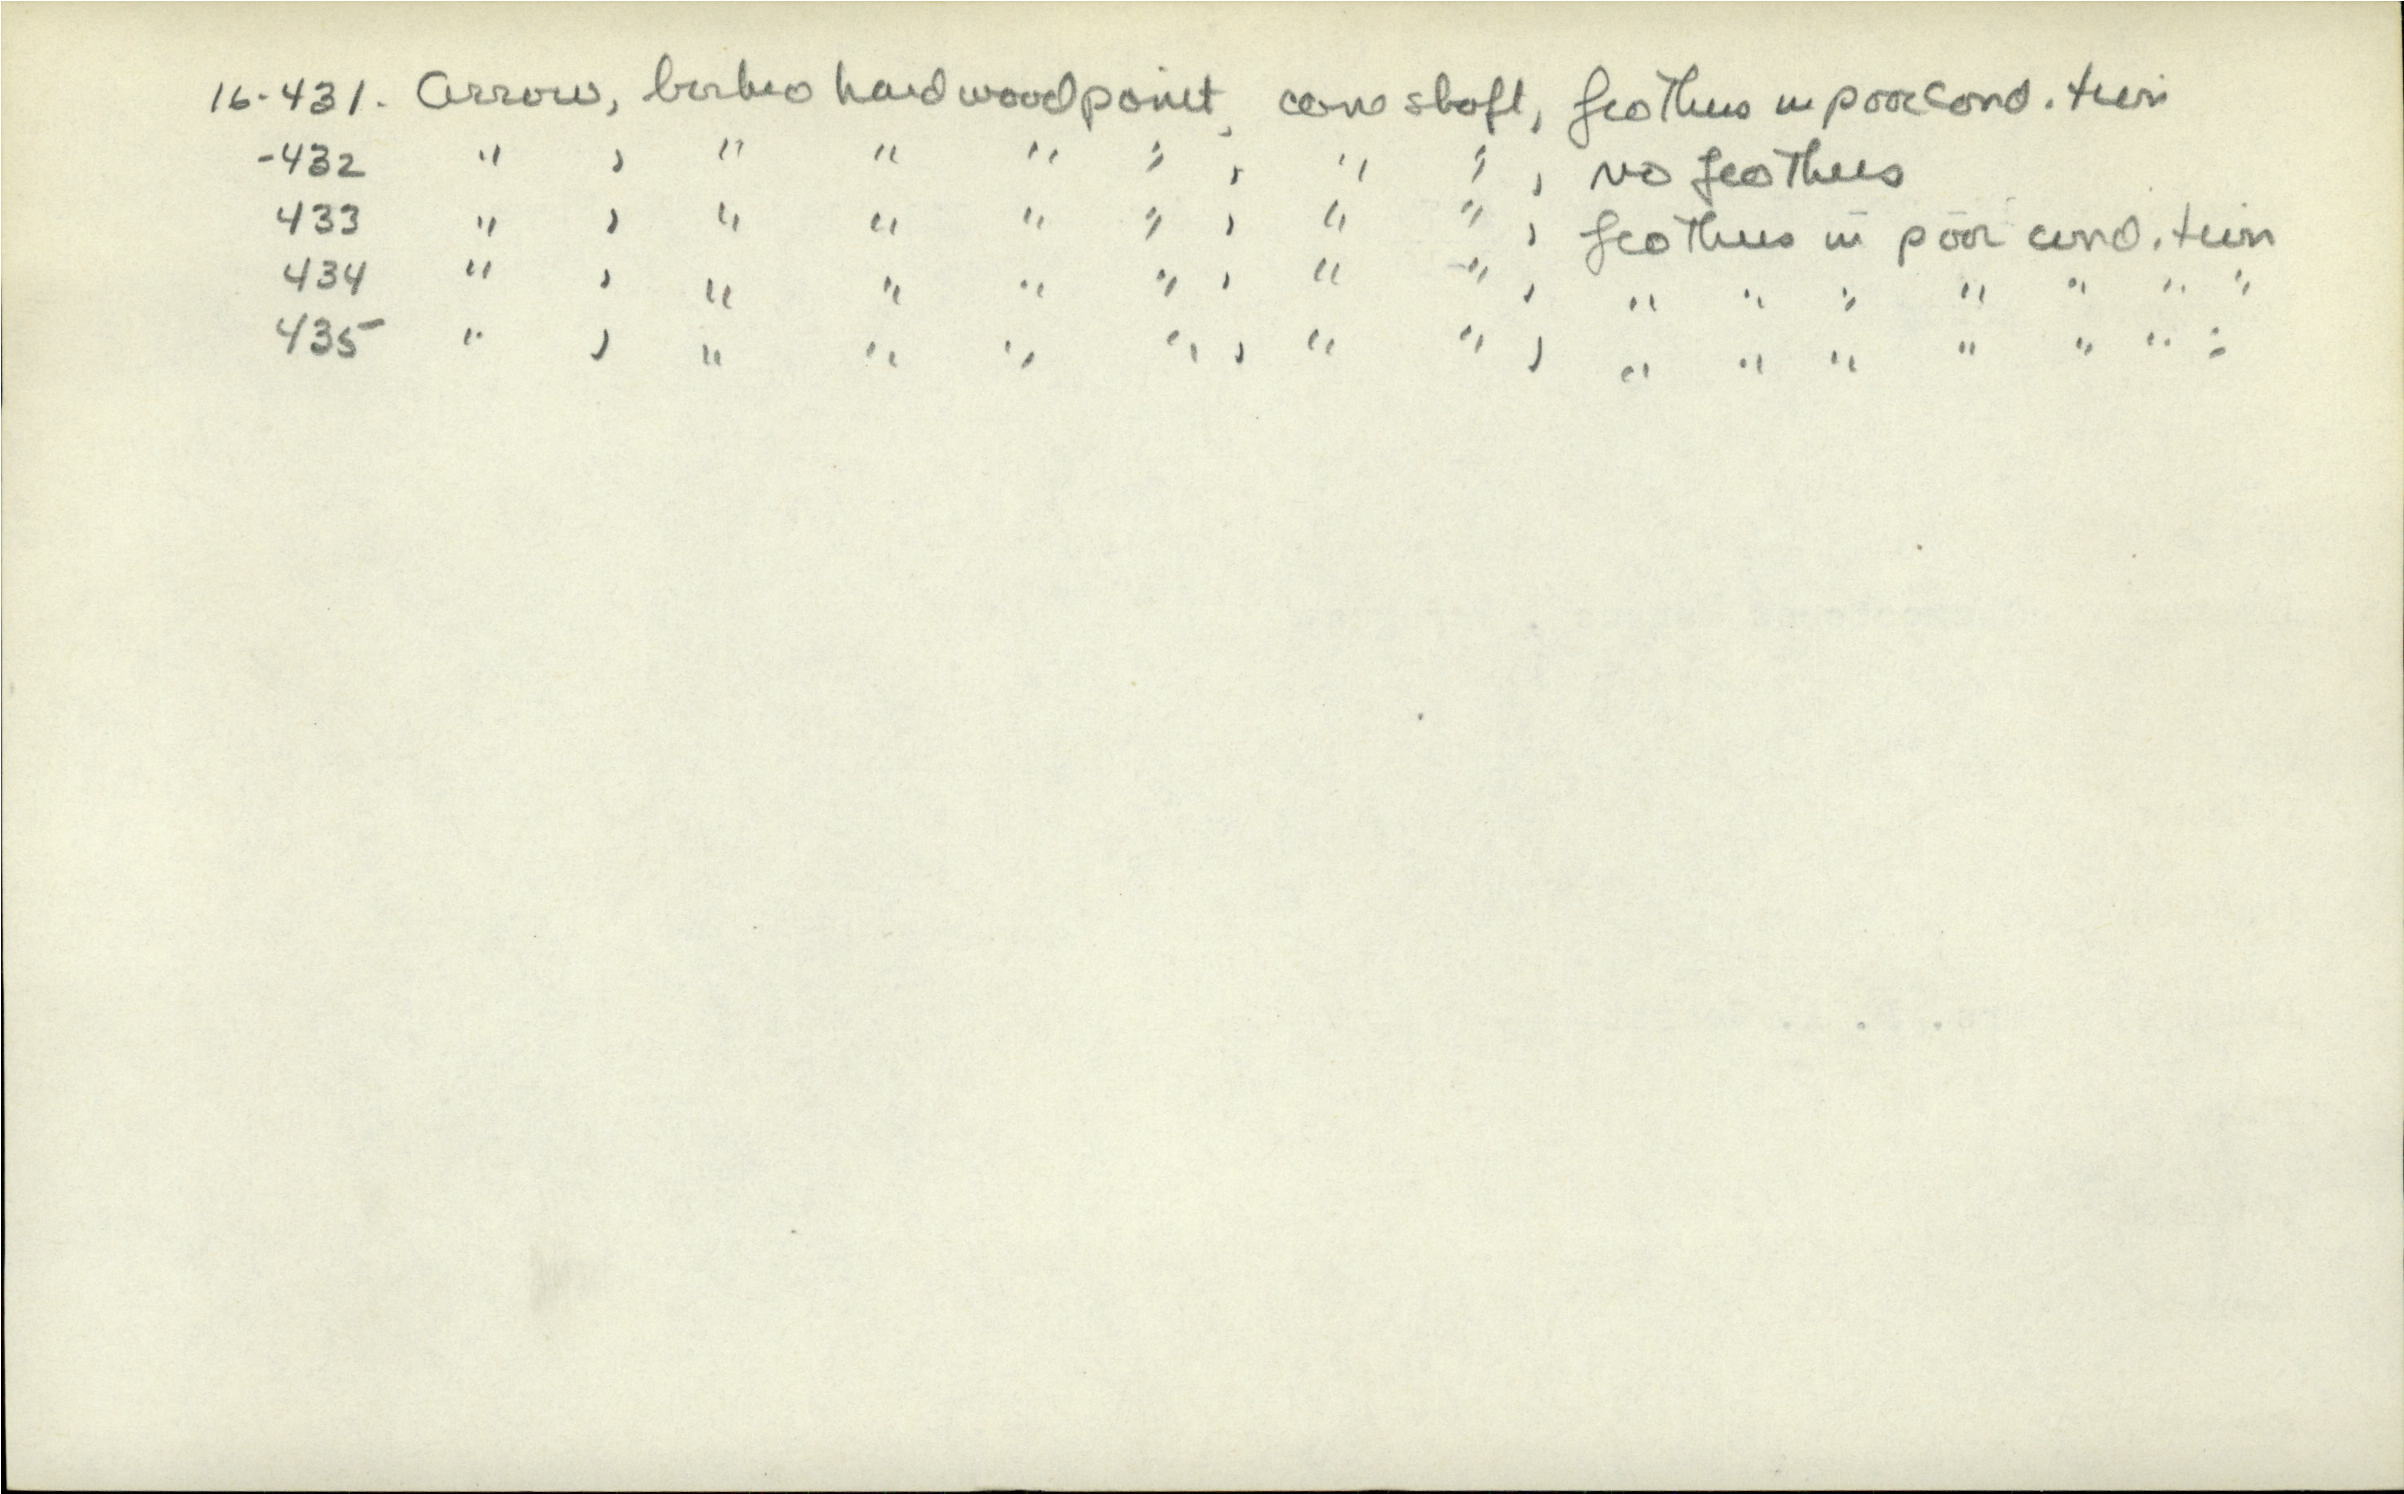 16-431. Arrow, barbed hard wood point, cane shaft, feathers in poor condition
-432 " , " " " " , " " , no feathers
433 " , " " " " , " " , feathers in poor condition
434 " , " " " " , " " , " " " " " " "
435 " , " " " " , " " , " " " " " " "